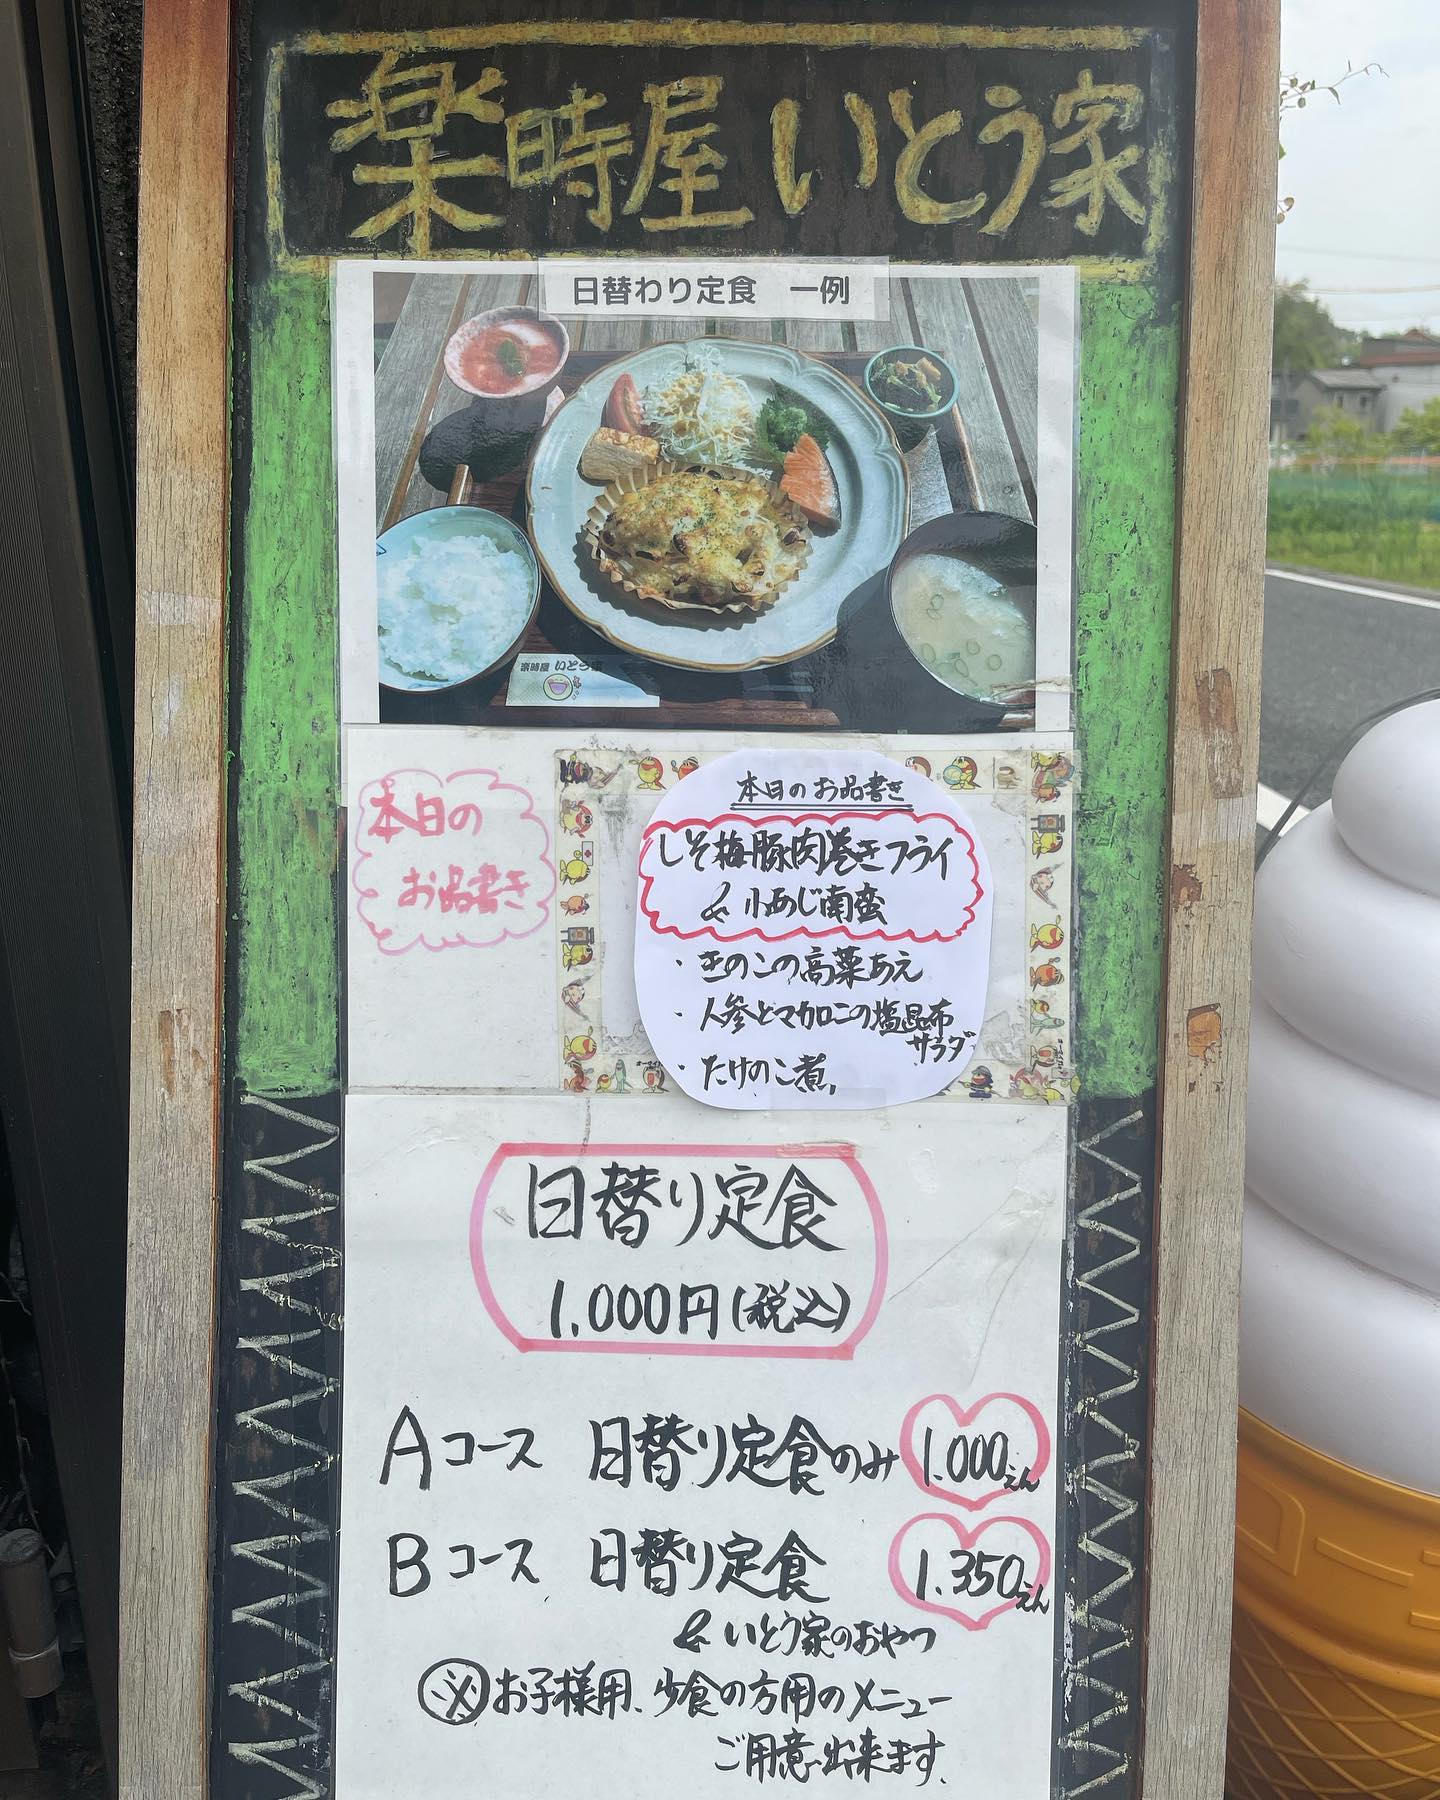 楽時屋 いとう家
日替わり定食 一例
楽時屋 いとう家
本日の
お品書き
本日のお品書き
しそ梅豚肉巻きフライ
& 小あじ南蛮
・きのこの高菜あえ
・人参とマカロニの塩昆布
サラダ
・たけのこ煮
日替り定食
1.000円(税込)
Aコース 日替り定食のみ 1.000えん
Bコース 日替り定食 1.350えん
& いとう家のおやつ
※お子様用、少食の方用のメニュー
ご用意出来ます。